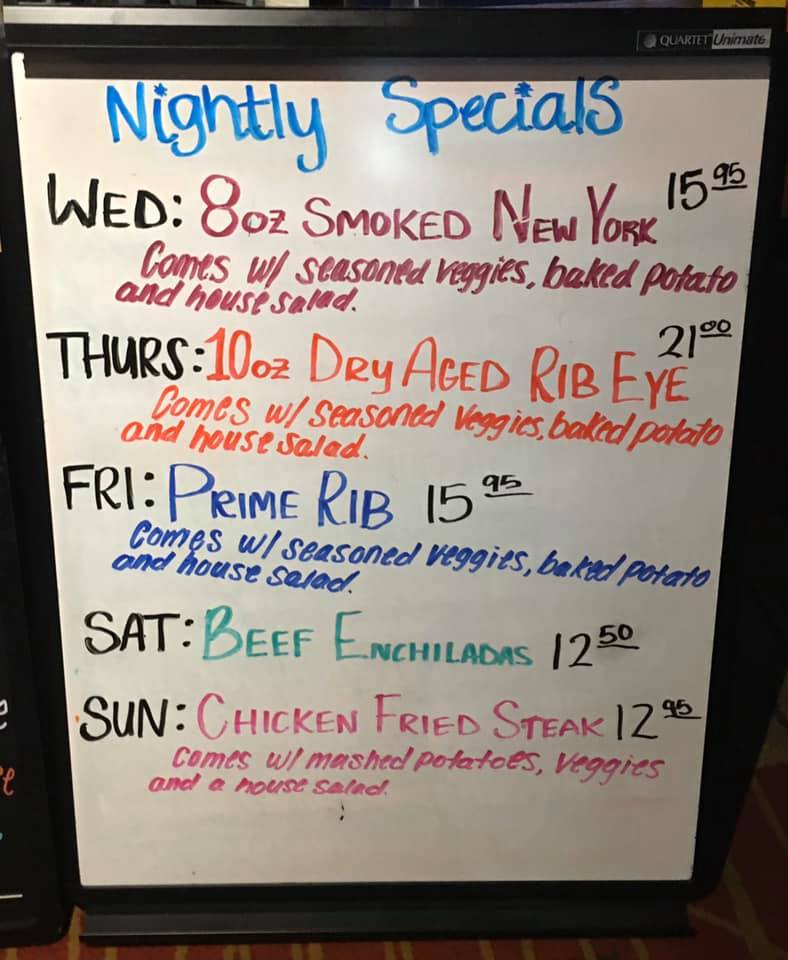 QUARTET Unimate
Nightly Specials
WED: 8oz SMOKED NEW YORK 15 95
Comes w/ seasoned veggies, baked potato
and house salad.
THURS: 10oz DRY AGED RIB EYE 21 00
Comes w/ seasoned veggies, baked potato
and house salad.
FRI: PRIME RIB 15 95
Comes w/ seasoned veggies, baked potato
and house salad.
SAT: BEEF ENCHILADAS 12 50
SUN: CHICKEN FRIED STEAK 12 95
Comes w/ mashed potatoes, veggies
and a house salad.